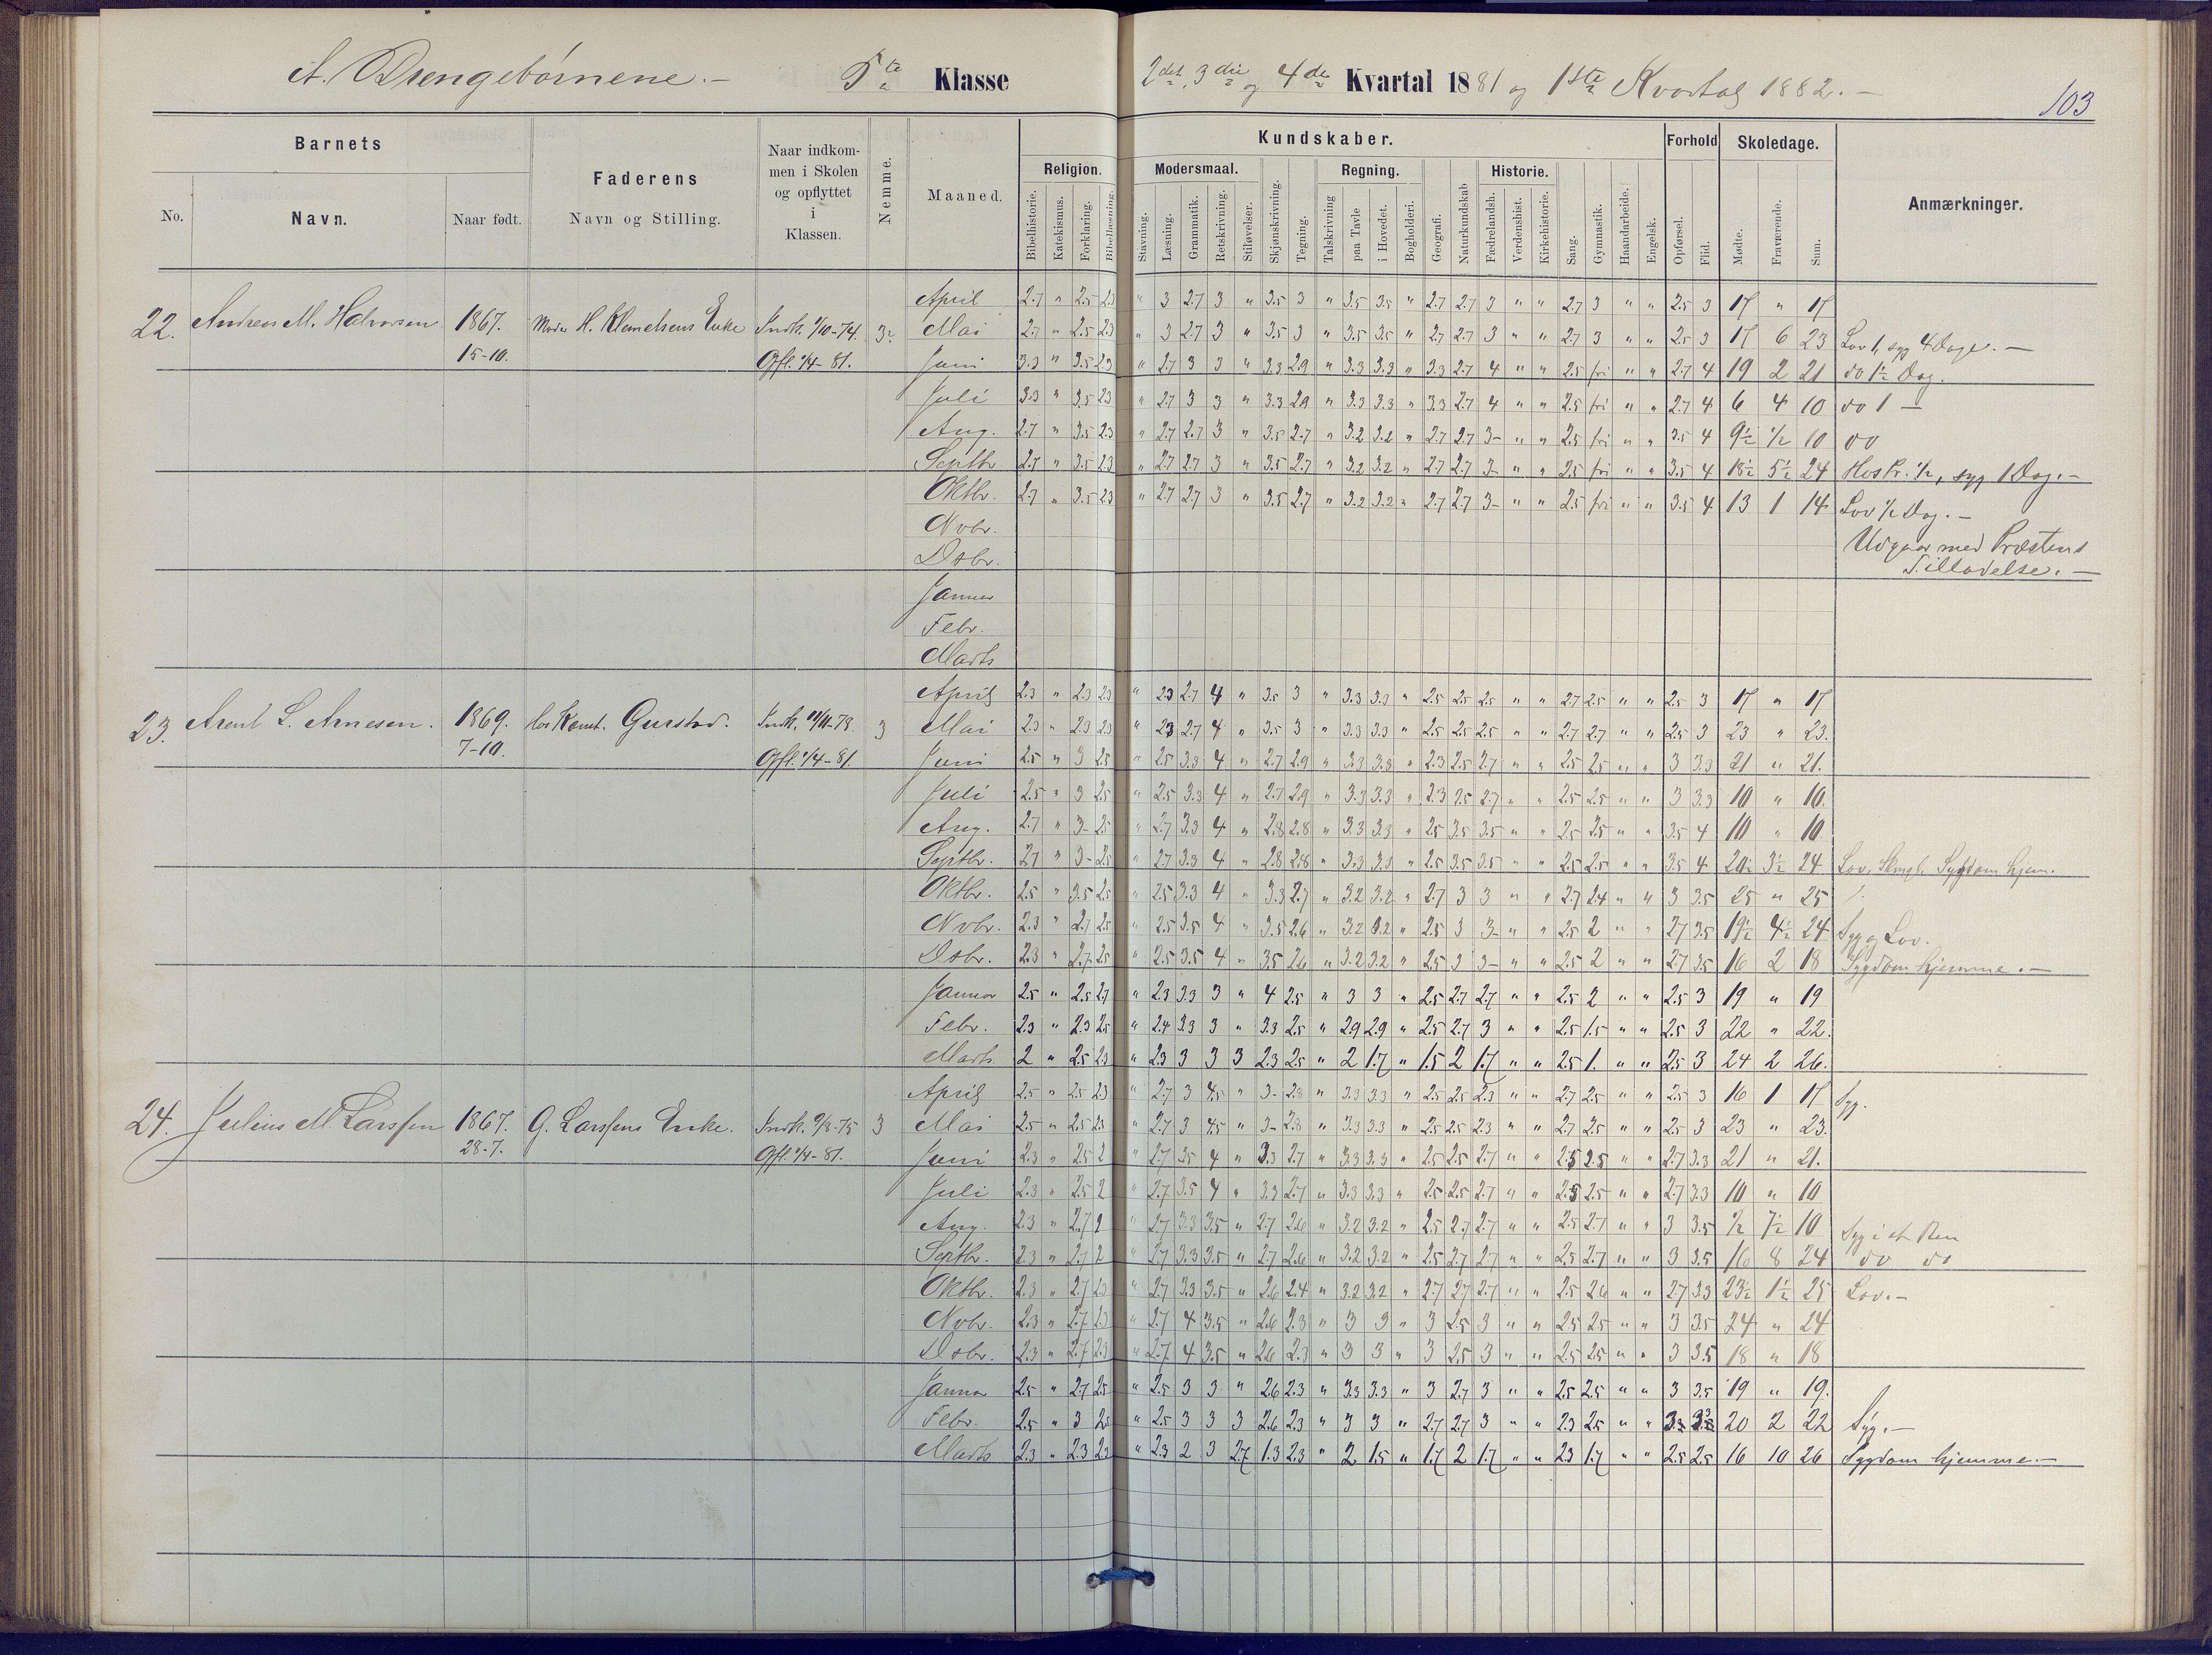 A. Drengebørnene.- 5te Klasse 2det, 3die og 4de Kvartal 1881 og 1ste Kvartal 1882.-
103
Barnets
No.
Navn.
Naar født.
Faderens
Navn og Stilling.
Naar indkom-
men i Skolen
og opflyttet
i
Klassen.
Nemme.
Maaned.
Kundskaber.
Religion.
Bibelhistorie. Katekismus. Forklaring. Bibellæsning.
Modersmaal.
Stavning. Læsning. Grammatik. Retskrivning. Stiløvelser.
Skjønskrivning. Tegning.
Regning.
Talskrivning paa Tavle i Hovedet. Bogholderi.
Geografi. Naturkundskab
Historie.
Fædrelandsh. Verdenshist. Kirkehistorie.
Sang. Gymnastik. Haandarbeide. Engelsk.
Forhold
Opførsel. Flid.
Skoledage.
Mødte. Fraværende. Sum.
Anmærkninger.
22. Andreas M. Halvorsen 1867. 15-10. Moder H. Klemetsens Enke Indk. 1/10-74. Opfl. 1/4-81. 3-
April 2.7 " 2.5 2.3 " 3 2.7 3 " 3.5 3 " 3.5 3.5 " 2.7 2.7 3 " " 2.7 3 " " 2.5 3 17 " 17
Mai 2.7 " 2.5 2.3 " 3 2.7 3 " 3.5 3 " 3.5 3.5 " 2.7 2.7 3 " " 2.7 3 " " 2.5 3 17 6 23 Lov 1, syg 4 Dage.-
Juni 3.3 " 3.5 2.3 " 2.7 3 3 " 3.3 2.9 " 3.3 3.3 " 3.3 2.7 4 " " 2.5 fri " " 2.7 4 19 2 21 do 1½ Dag.
Juli 3.3 " 3.5 2.3 " 2.7 3 3 " 3.3 2.9 " 3.3 3.3 " 3.3 2.7 4 " " 2.5 fri " " 2.7 4 6 4 10 do 1 -
Aug. 2.7 " 3.5 2.3 " 2.7 2.7 3 " 3.5 2.7 " 3.2 3.2 " 2.7 2.7 3- " " 2.5 fri " " 3.5 4 9½ ½ 10 do
Septbr. 2.7 " 3.5 2.3 " 2.7 2.7 3 " 3.5 2.7 " 3.2 3.2 " 2.7 2.7 3- " " 2.5 fri " " 3.5 4 18½ 5½ 24 Hos Pr. ½, syg 1 Dag.-
Oktbr. 2.7 " 3.5 2.3 " 2.7 2.7 3 " 3.5 2.7 " 3.2 3.2 " 2.7 2.7 3- " " 2.5 fri " " 3.5 4 13 1 14 Lov ½ Dag.-
Nvbr.
Udgaar med Præstens
Dsbr.
Tilladelse.-
Januar
Febr.
Marts
23. Arent L. Arnesen. 1869. 7-10. hos Komt. Gurstad. Opfl. 1/4-81. 3
April 2.3 " 2.3 2.3 " 2.3 2.7 4 " 3.5 3 " 3.3 3.3 " 2.5 2.5 2.5 " " 2.7 2.5 " " 2.5 3 17 " 17
Mai 2.3 " 2.3 2.3 " 2.3 2.7 4 " 3.5 3 " 3.3 3.3 " 2.5 2.5 2.5 " " 2.7 2.7 " " 2.5 3 23 " 23.
Juni 2.5 " 3 2.5 " 2.5 3.3 4 " 2.7 2.9 " 3.3 3.3 " 2.3 2.5 2.7 " " 2.5 2.5 " " 3 3.3 21 " 21.
Juli 2.5 " 3 2.5 " 2.5 3.3 4 " 2.7 2.9 " 3.3 3.3 " 2.3 2.5 2.7 " " 2.5 2.5 " " 3 3.3 10 " 10.
Aug. 2.7 " 3- 2.5 " 2.7 3.3 4 " 2.8 2.8 " 3.3 3.3 " 2.5 3.5 3.5 " " 2.5 2.5 " " 3.5 4 10 " 10.
Septbr. 2.7 " 3- 2.5 " 2.7 3.3 4 " 2.8 2.8 " 3.3 3.3 " 2.5 3.5 3.5 " " 2.5 2.5 " " 3.5 4 20½ 3½ 24 Lov, Sygdom hjem.
Oktbr. 2.5 " 3.5 2.5 " 2.5 3.3 4 " 3.3 2.7 " 3.2 3.2 " 2.7 3 3 " " 2.7 2.4 " " 3 3.5 25 " 25
Nvbr. 2.3 " 2.7 2.5 " 2.5 3.5 4 " 3.5 2.6 " 3.2 3.2 " 2.5 3 3- " " 2.5 2 " " 2.7 3.5 19½ 4½ 24 Syg og Lov.
Dsbr. 2.3 " 2.7 2.5 " 2.5 3.5 4 " 3.5 2.6 " 3.2 3.2 " 2.5 3 3- " " 2.5 2 " " 2.7 3.5 16 2 18 Sygdom hjemme.-
Januar 2.5 " 2.5 2.7 " 2.3 3.3 3 " 4 2.5 " 3 3 " 2.5 2.7 2.7 " " 2.5 2 " " 2.5 3 19 " 19
Febr. 2.3 " 2.3 2.5 " 2.4 3.3 3 " 3.3 2.5 " 2.9 2.9 " 2.5 2.7 3 " " 2.5 1.5 " " 2.5 3 22 " 22.
Marts 2 " 2.5 2.3 " 2.3 3 3 3 2.3 2.5 " 2 1.7 " 1.5 2 1.7 " " 2.5 1. " " 2.5 3 24 2 26.
24. Julius M. Larssen 1867. 28-7. G. Larssens Enke. Indk. 9/8-75 Opfl. 1/4-81. 3
April 2.5 " 2.5 2.3 " 2.7 3 4.5 " 3- 2.8 " 3.3 3.3 " 2.5 2.5 2.3 " " 2.7 2.5 " " 2.5 3 16 1 17 Syg.
Mai 2.5 " 2.5 2.3 " 2.7 3 4.5 " 3- 2.8 " 3.3 3.3 " 2.5 2.5 2.3 " " 2.7 2.5 " " 2.5 3 23 " 23.
Juni 2.3 " 2.5 2 " 2.7 3.5 4 " 3.3 2.7 " 3.3 3.3 " 2.5 2.5 2.7 " " 2.5 2.5 " " 2.7 3.3 21 " 21.
Juli 2.3 " 2.5 2 " 2.7 3.5 4 " 3.3 2.7 " 3.3 3.3 " 2.5 2.5 2.7 " " 2.5 2.5 " " 2.7 3.3 10 " 10
Aug. 2.3 " 2.7 2 " 2.7 3.3 3.5 " 2.7 2.6 " 3.2 3.2 " 2.5 2.7 2.7 " " 2.5 2.7 " " 3 3.5 ½ 7½ 10 Syg i et Ben
Septbr. 2.3 " 2.7 2 " 2.7 3.3 3.5 " 2.7 2.6 " 3.2 3.2 " 2.5 2.7 2.7 " " 2.5 2.7 " " 3 3.5 16 8 24 do do
Oktbr. 2.3 " 2.7 2.3 " 2.7 3.3 3.5 " 2.6 2.4 " 3.2 3.2 " 2.7 2.7 2.7 " " 2.5 2.6 " " 2.7 3.3 23½ 1½ 25 Lov.-
Nvbr. 2.3 " 2.7 2.3 " 2.7 4 3.5 " 2.6 2.3 " 3 3 " 3 2.5 3 " " 2.5 2.5 " " 3 3.5 24 " 24
Dsbr. 2.3 " 2.7 2.3 " 2.7 4 3.5 " 2.6 2.3 " 3 3 " 3 2.5 3 " " 2.5 2.5 " " 3 3.5 18 " 18
Januar 2.5 " 2.7 2.5 " 2.5 3 3 " 2.6 2.3 " 3.3 3.3 " 3 2.7 3 " " 2.5 2.5 " " 3 3.5 19 " 19.
Febr. 2.5 " 3 2.5 " 2.5 3 3 3 2.6 2.3 " 3 3 " 2.7 2.7 3 " " 2.3 2.5 " " 20 2 22 Syg.-
Marts 2.3 " 2.3 2.3 " 2.3 2 3 2.7 1.3 2.3 " 2 1.5 " 1.7 2 1.7 " " 2.3 1.7 " " 2.5 2.5 16 10 26 Sygdom hjemme.-